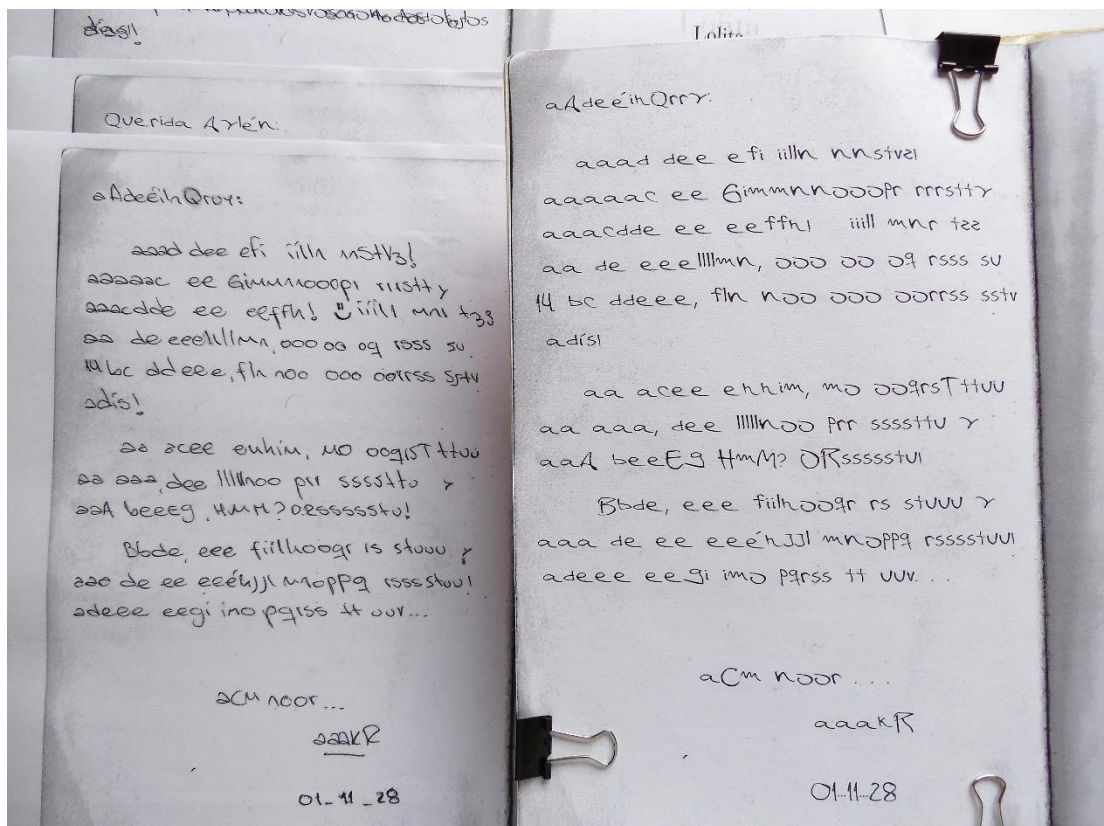 días!!
Lolita
Querida Aylén:
aAdeéihQruy:
aaad dee efi iilln nnstv3!
aaaaac ee Gimmnnooopr rrrstty
aaacdde ee eeffh! iiill mnr tzz
aa de eeellllmn, ooo oo oq rsss su
14 bc ddeee, fln noo ooo oorrss sstv
adís!
aa acee enhim, mo ooqrsTttuu
aa aaa, dee lllllnoo prr ssssttu y
aaA beeEg, HMM? ORssssstu!
Bbde, eee fiillhooqr rs stuuu y
aaa de ee eeéhjjl mnoppq rsssstuu!
adeee eegi imo pqrss tt uuv...
aCM noor...
aaakR
01_11_28
aAdeéihQrry:
aaad dee efi iilln nnstvzl
aaaaac ee Gimmnnooopr rrrstty
aaacdde ee eeffhl iiill mnr tzz
aa de eeellllmn, ooo oo oq rsss su
14 bc ddeee, fln noo ooo oorrss sstv
adísl
aa acee ehhim, mo ooqrsTttuu
aa aaa, dee lllllnoo prr sssssttu y
aaA beeEg HmM? ORssssstul
Bbde, eee fiilhooqr rs stuuu y
aaa de ee eeéhJJl mnoppq rsssstuul
adeee eegi imo pqrss tt uuv...
aCm noor...
aaakR
01...11...28